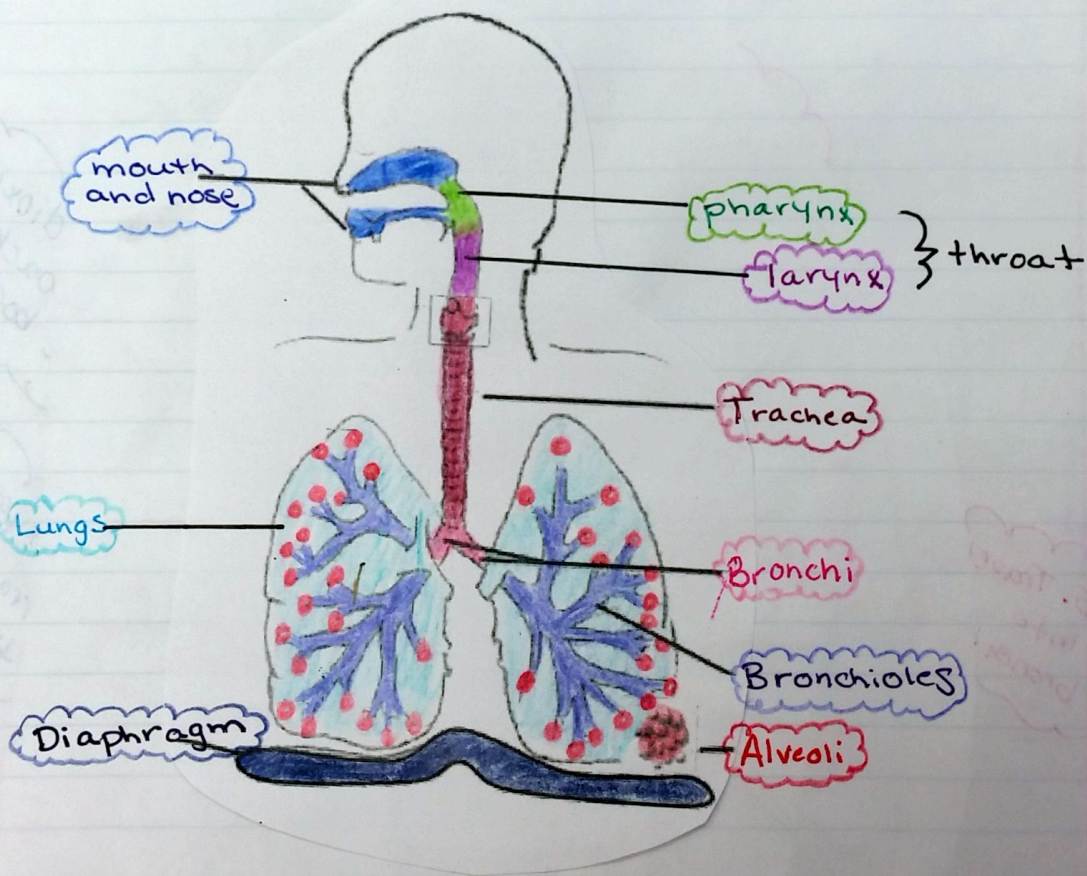 mouth
and nose
pharynx
larynx
throat
Trachea
Lungs
Bronchi
Bronchioles
Diaphragm
Alveoli